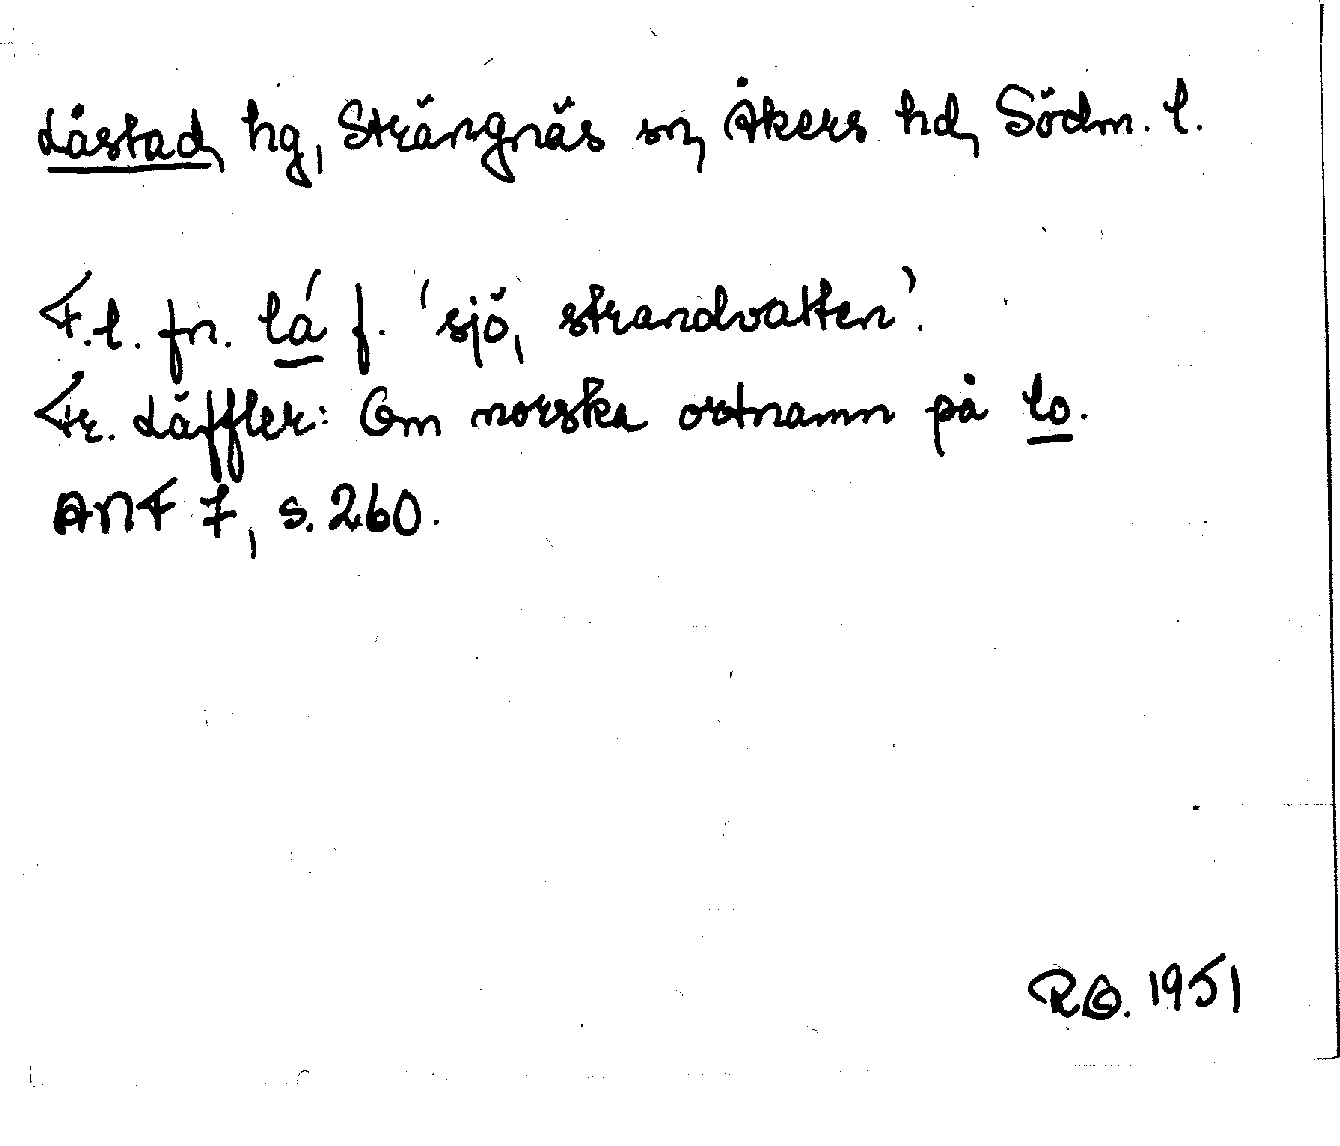 Låstad, hg, Strängnäs sn, Åkers hd, Södm. l.
F.l. fn. lá f. 'sjö, strandvatten'.
Fr. Läffler: Om norska ortnamn på lo.
ANF 7, s. 260.
RO. 1951